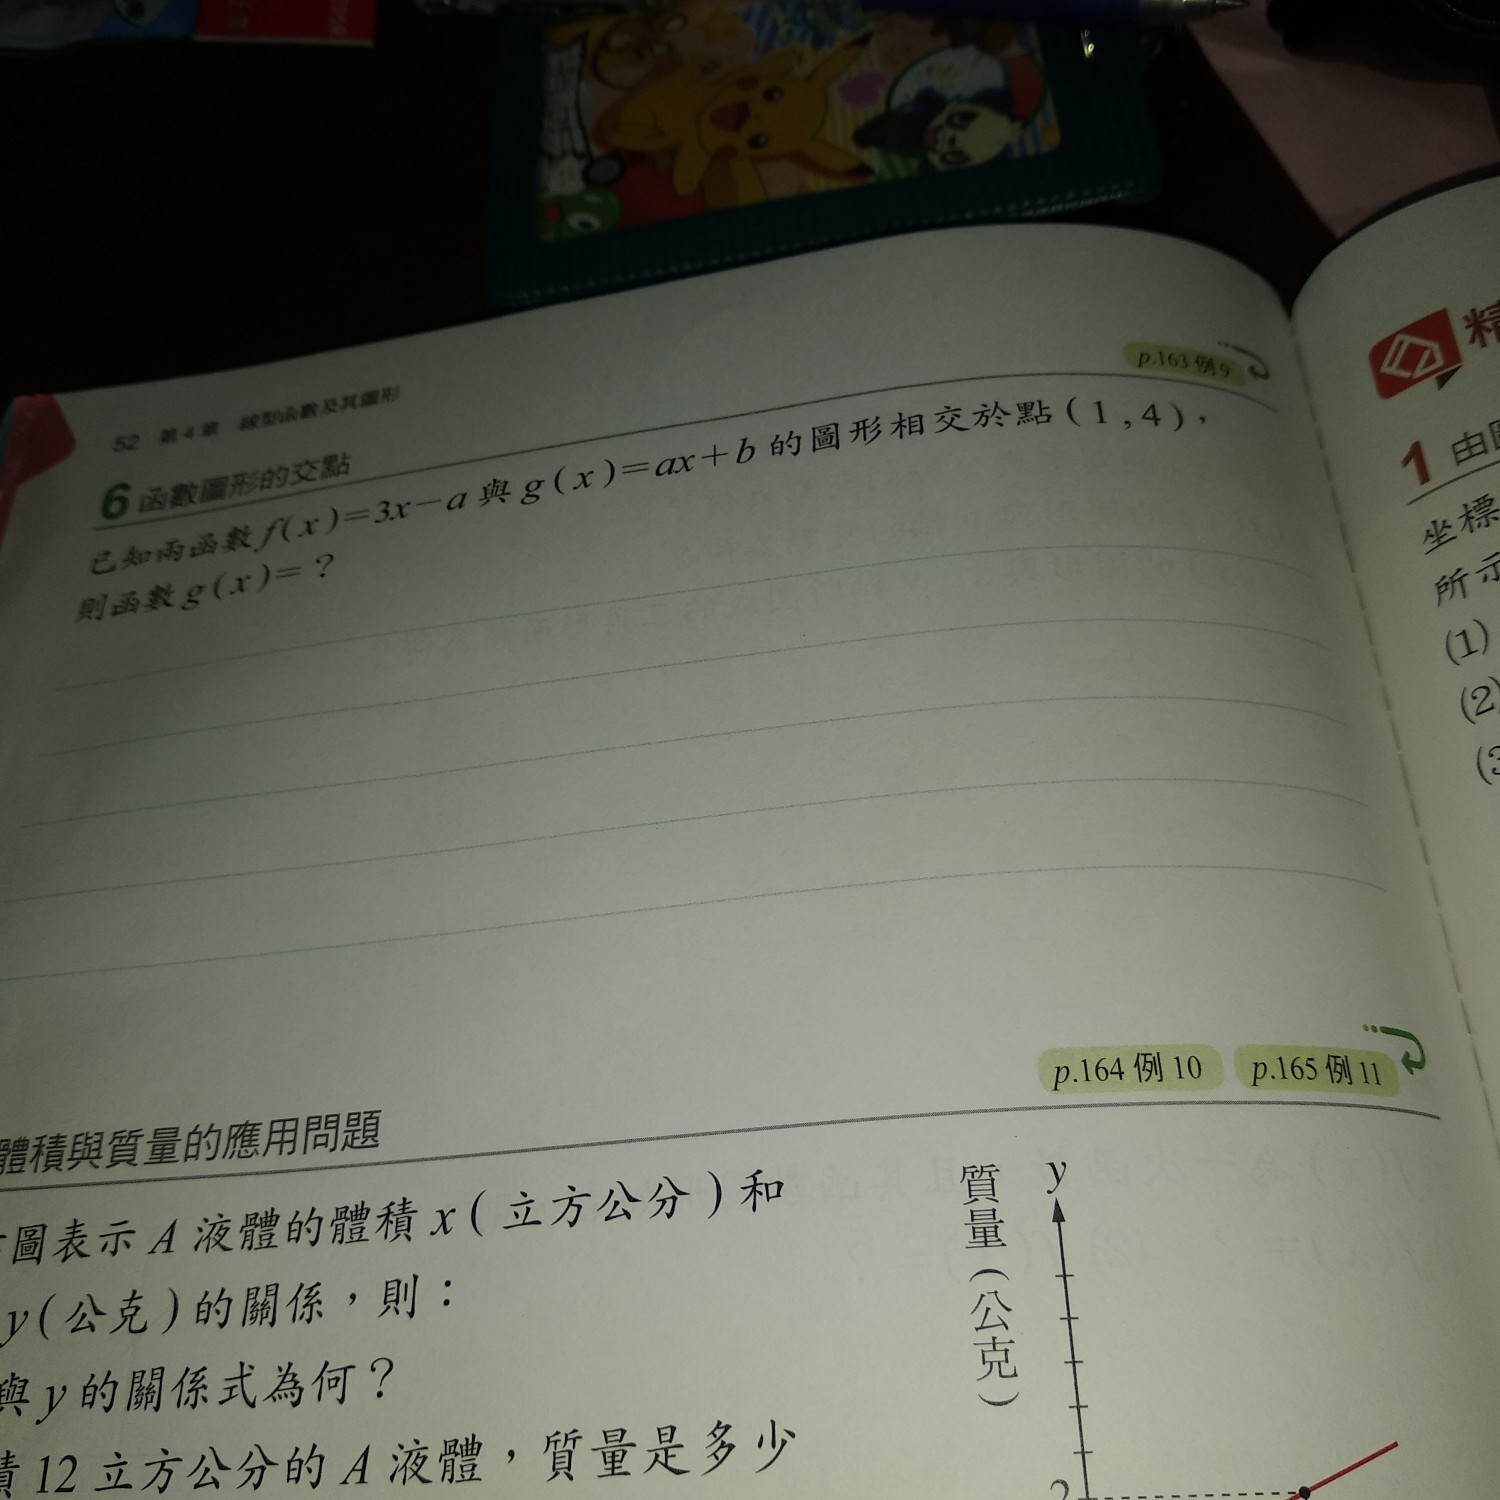 p.163 例9
52 第4章 線型函數及其圖形
6 函數圖形的交點
已知兩函數 f(x)=3x-a 與 g(x)=ax+b 的圖形相交於點(1,4),
則函數 g(x)=?
p.164 例10 p.165 例11
體積與質量的應用問題
圖表示 A 液體的體積 x(立方公分)和
y(公克)的關係,則:
與 y 的關係式為何?
積 12 立方公分的 A 液體,質量是多少
質量(公克)
y
2
精
1 由
坐標
所示
(1)
(2)
(3